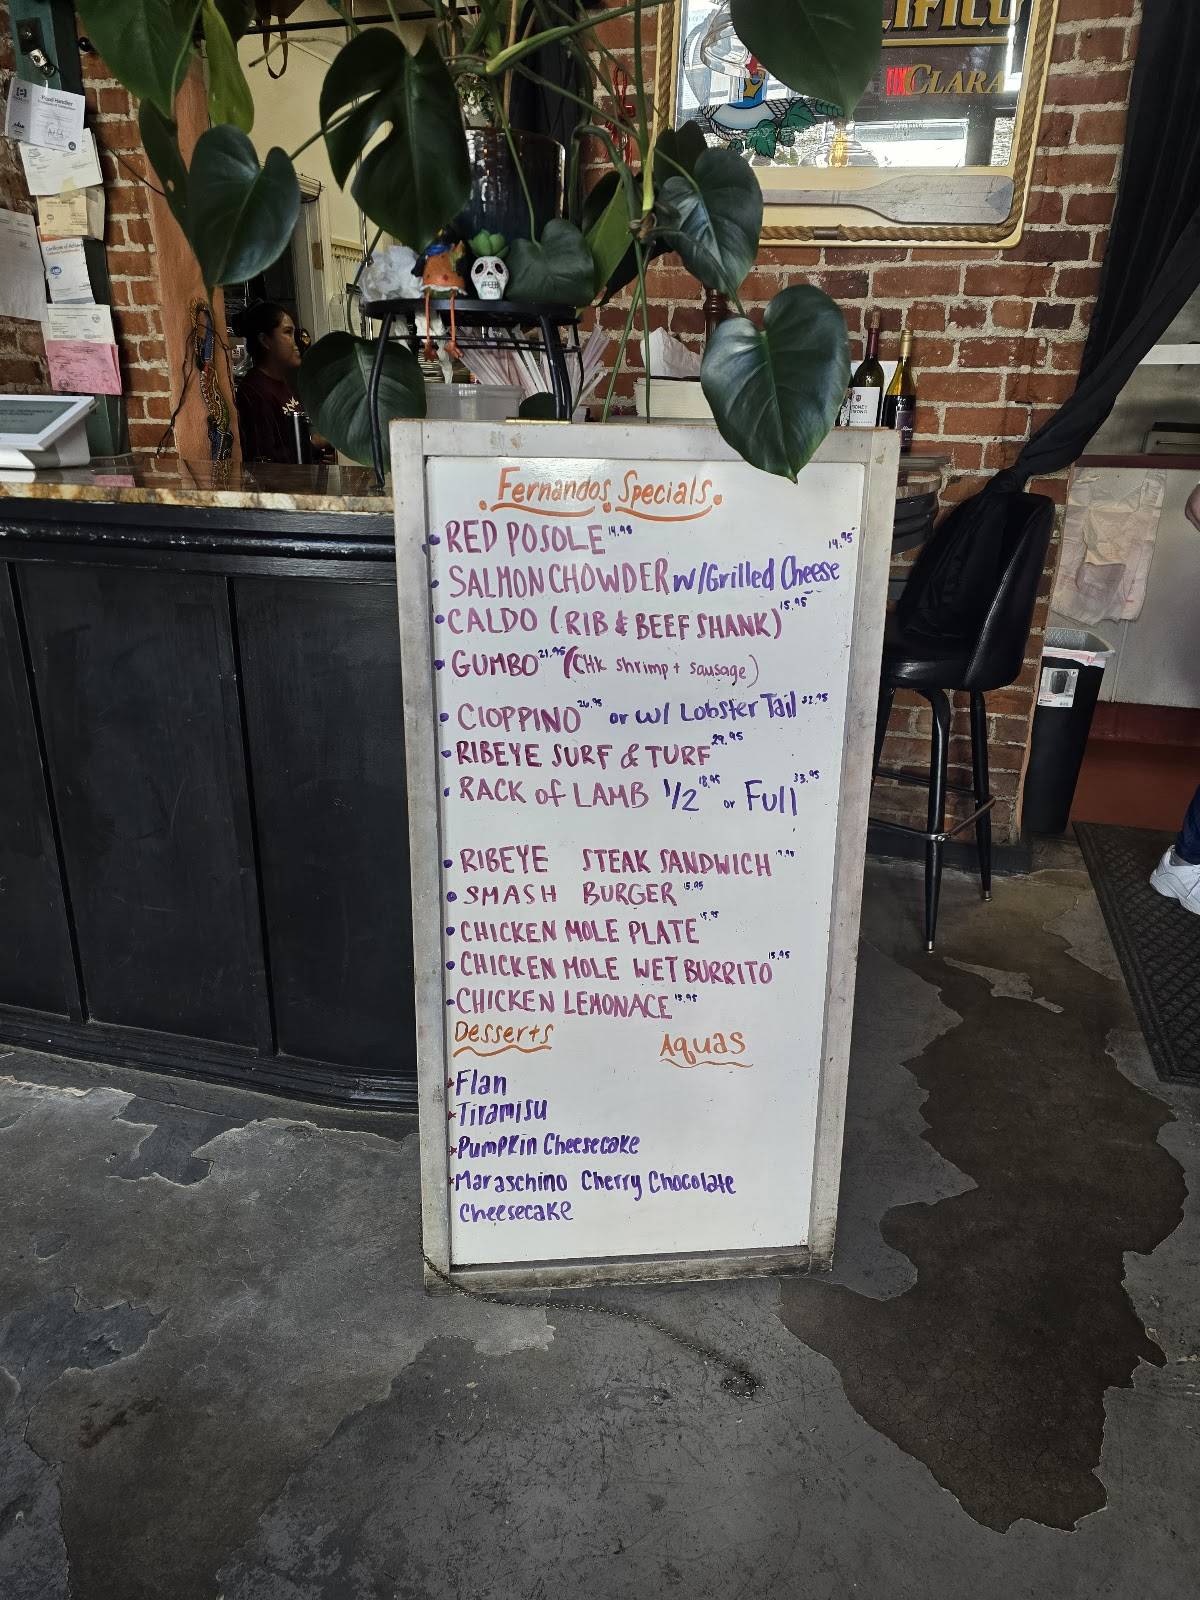 CIFICO
CLARA
Food Handler
Fernandos Specials
RED POSOLE 14.95
SALMON CHOWDER w/Grilled Cheese 14.95
CALDO (RIB & BEEF SHANK) 15.95
GUMBO 21.95 (CHK shrimp + sausage)
CIOPPINO 26.95 or w/ Lobster Tail 32.95
RIBEYE SURF & TURF 29.95
RACK of LAMB 1/2 18.95 or Full 33.95
RIBEYE STEAK SANDWICH
SMASH BURGER 15.95
CHICKEN MOLE PLATE 15.95
CHICKEN MOLE WET BURRITO 15.95
CHICKEN LEMONACE 15.95
Desserts Aquas
Flan
Tiramisu
Pumpkin Cheesecake
Maraschino Cherry Chocolate
Cheesecake